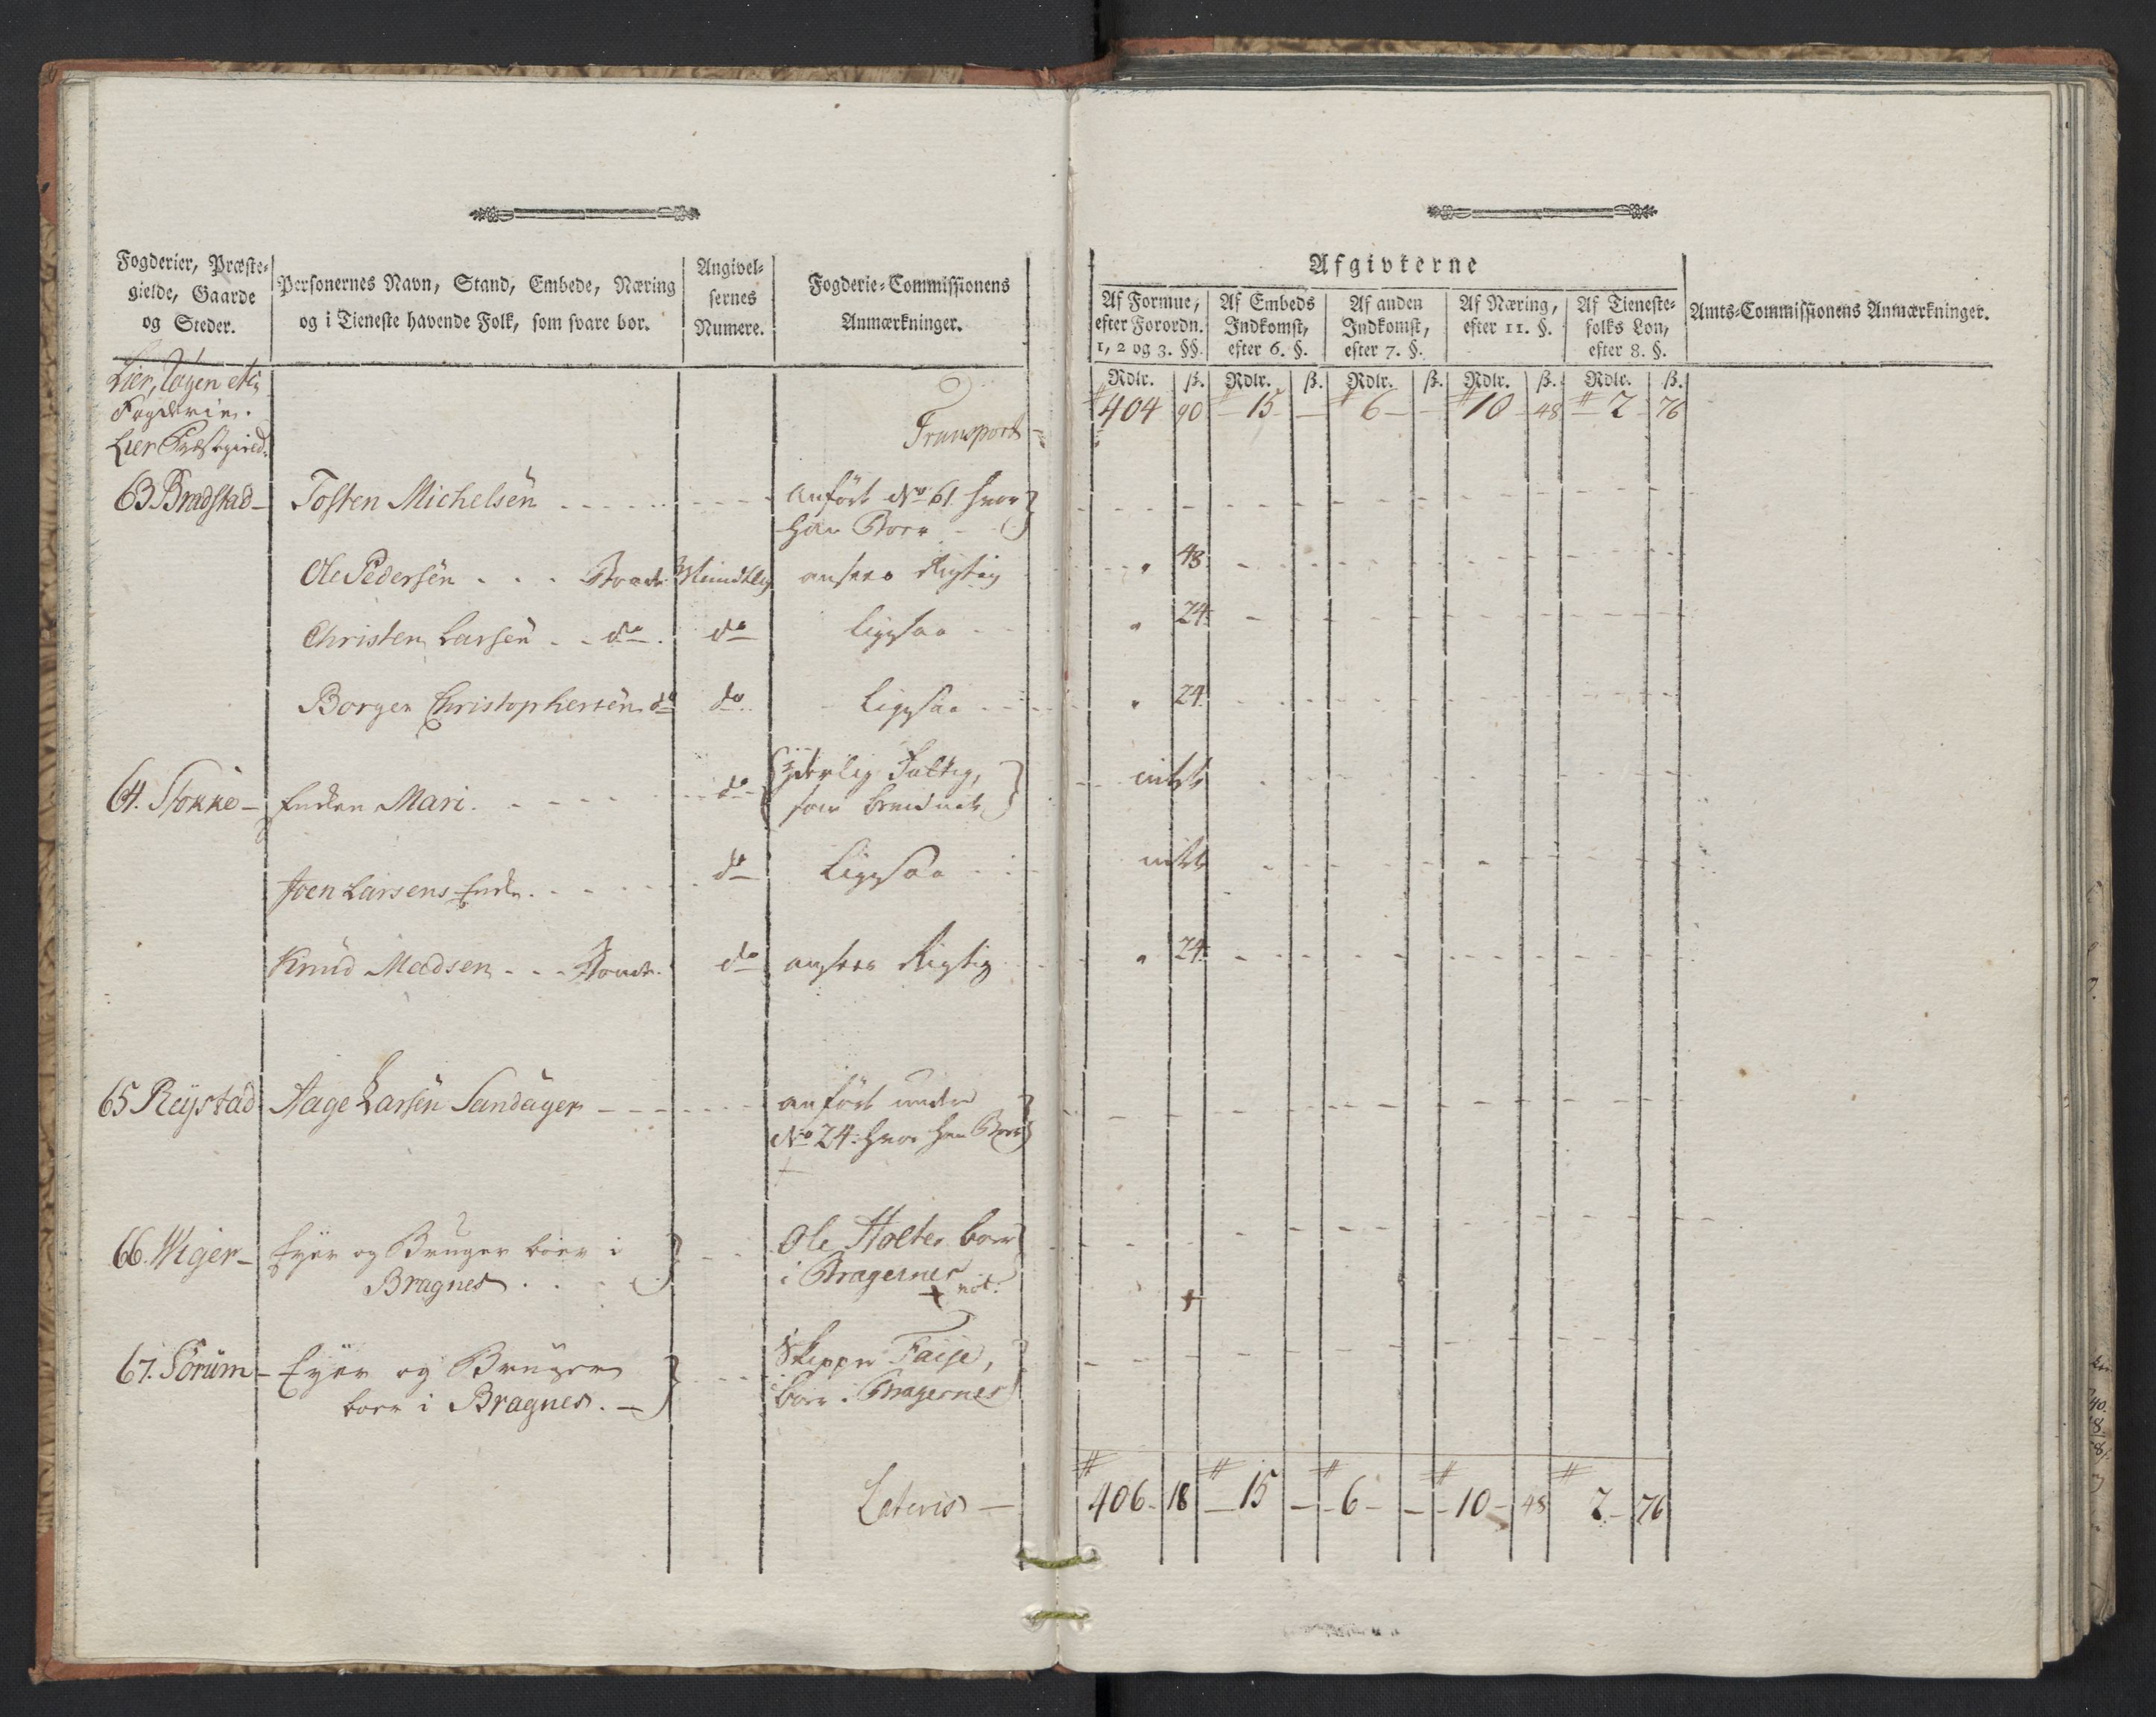 Fogderier, Præste-
gielde, Gaarde
og Steder.
Personernes Navn, Stand, Embede, Næring
og i Tieneste havende Folk, som svare bør.
Angivel-
sernes
Numere.
Fogderie-Commissionens
Anmærkninger.
Afgivterne
Af Formue,
efter Forordn.
1, 2 og 3. §§.
Af Embeds
Indkomst,
efter 6. §.
Af anden
Indkomst,
efter 7. §.
Af Næring,
efter 11. §.
Af Tieneste-
folks Løn,
efter 8. §.
Amts-Commissionens Anmærkninger.
Rdlr. ß. Rdlr. ß. Rdlr. ß. Rdlr. ß. Rdlr. ß.
Lier,
Fogderie.
Lier Præstegield.
Transport 404 90 15 — 6 — 10 48 2 76
63 Bradstad — Tosten Michelsen anført No 61 hvor
han Boer
Ole Pedersen Bonde Mundtlig ansees Rigtig " 48.
Christen Larsen do do ligesaa " 24.
Borger Christophersen do do Ligesaa " 24.
64. Stokke — Enken Mari do Yderlig Fattig, intet
som
Joen Larsens Enke do Ligesaa intet
Knud Madsen Bonde do ansees Rigtig " 24.
65 Reystad Aage Larsen Sandager anført under
No 24. hvor han Boer
66. Wiger — Eyer og Bruger boer i Ole Holter boer
Bragnes i Bragernes
+ not. +
67. Sørum — Eyer og Bruger Skipper Faije,
boer i Bragnes. — boer i Bragernes
Lateris — 406 18 15 — 6 — 10 48 2 76